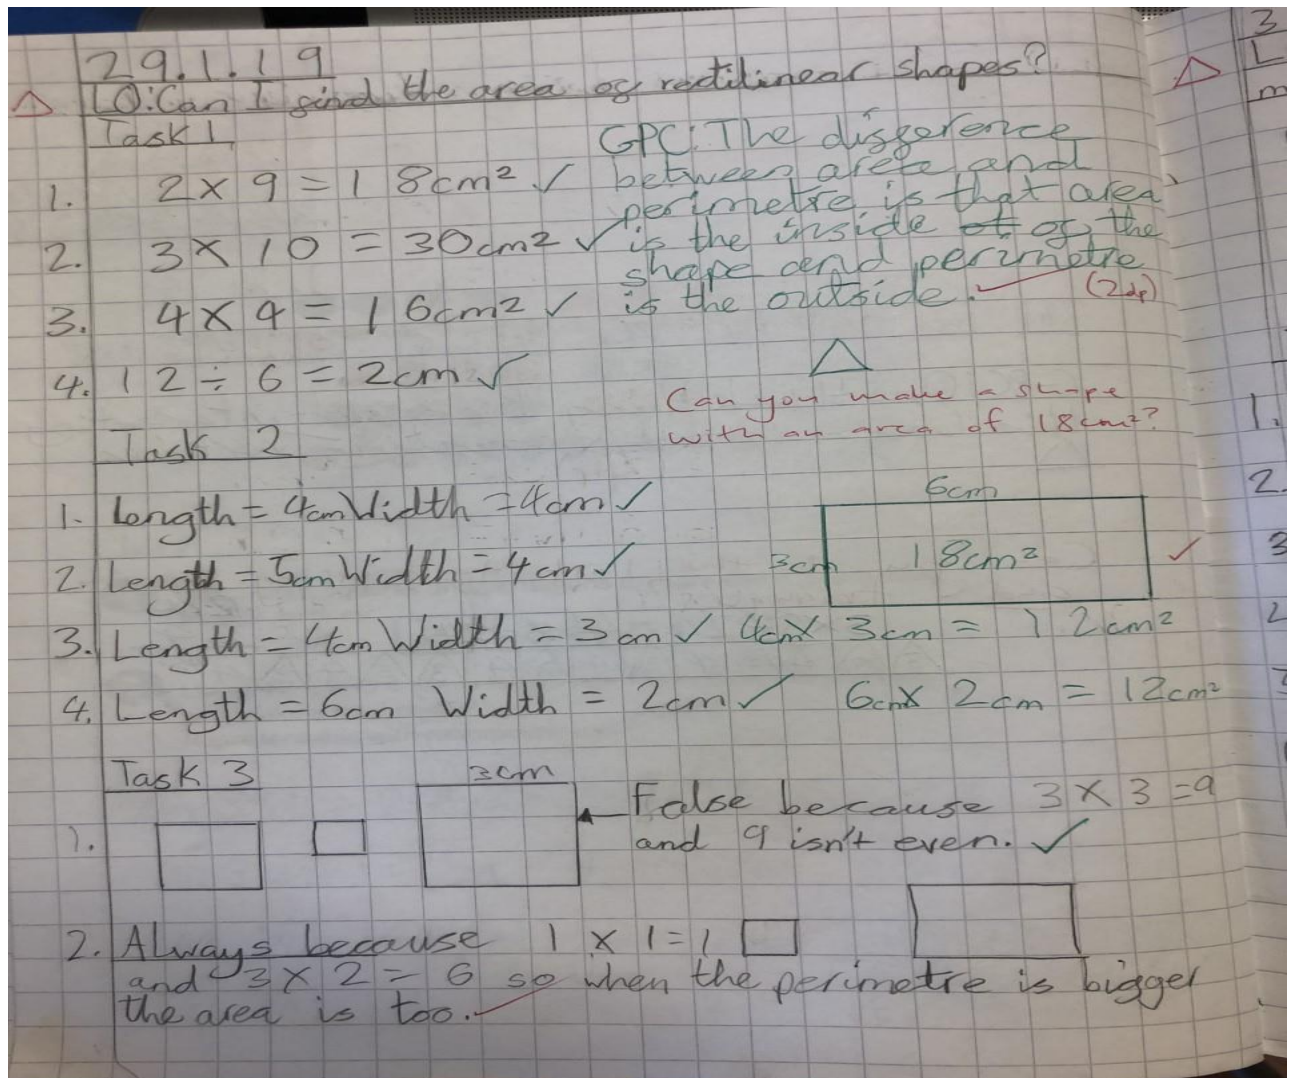 29.1.19
LO: Can I find the area of rectilinear shapes?
Task 1
1. 2 × 9 = 18cm² ✓
2. 3 × 10 = 30cm² ✓
3. 4 × 4 = 16cm² ✓
4. 12 ÷ 6 = 2cm ✓
GPC: The difference
between area and
perimetre is that area
is the inside of the
shape and perimetre
is the outside. ✓
Can you make a shape
with an area of 18cm²?
6cm
3cm
18cm² ✓
Task 2
1. Length = 4cm Width = 4cm ✓
2. Length = 5cm Width = 4cm ✓
3. Length = 4cm Width = 3cm ✓ 4cm × 3cm = 12cm²
4. Length = 6cm Width = 2cm ✓ 6cm × 2cm = 12cm²
Task 3
1.
3cm
False because 3 × 3 = 9
and 9 isn't even. ✓
2. Always because 1 × 1 = 1
and 3 × 2 = 6 so when the perimetre is bigger
the area is too. ✓
3
L
m
1.
2.
3